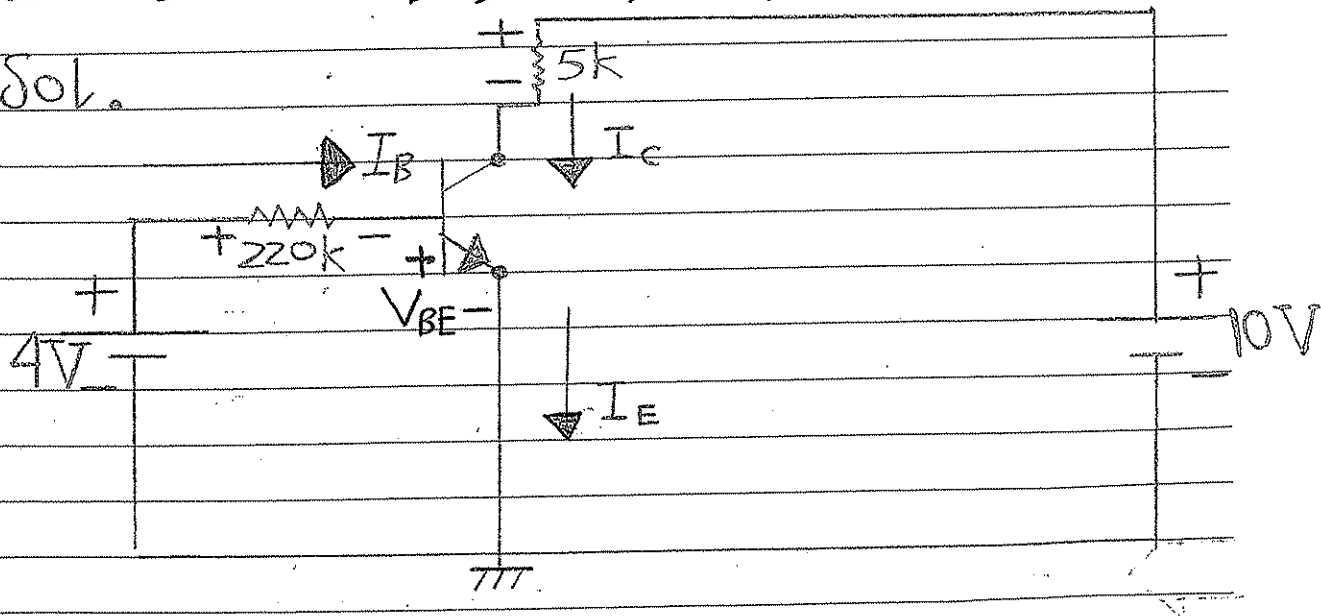 Sol.
+
- 5k
I_B
I_C
+ 220k -
+
V_BE -
+
4V -
I_E
+
10V
-